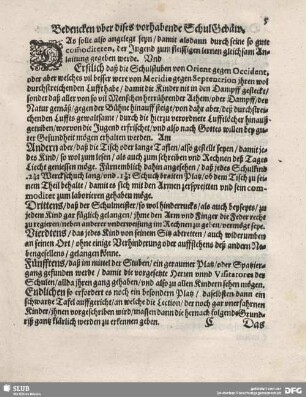 5
Bedencken vber dises vorhabende SchulGebäw.
Das solle also angelegt seyn / damit alsdann durch seine so gute
commoditeten, der Jugend zum fleissigen lernen gleichsam An-
laitung gegeben werde. Vnd
Erstlich daß die Schulstuben von Orient gegen Occident,
oder aber welches vil besser were von Meridie gegen Septentrion jhren wol
durchstreichenden Lufft habe / damit die Kinder nit in den Dampff gesteckt /
sonder daß aller von so vil Menschen herrührender Athem / oder Dampff der
Natur gemäß / gegen der Bühne hinauff steige / von dañen aber / deß durchstrei-
chenden Luffts gewaltsame / durch die hierzu verordnete Lufftlöcher hinauß-
getriben / worvon die Jugend erfrischet / vnd also nach Gottes willen bey gu-
ter Gesundheit mögen erhalten werden. Am
Andern aber / daß die Tisch oder lange Taflen / also gestelt seyen / damit je-
des Kind / so wol zum lesen / als auch zum schreiben vnd Rechnen deß Tages
Liecht geniessen möge. Fürnemblich dahin angesehen / daß jedes Schulkind
Werckschuch lang / vnd Schuch braiten Platz / ob dem Tisch zu sei-
nem Theil behalte / damit es sich mit den Armen zerspreitten vnd sein com-
moditet zum laboriren gehaben möge.
Drittens / daß der Schulmeister / so wol hinderrucks / als auch beyseyts / zu
jedem Kind gar füglich gelangen / jhme den Arm vnd Finger die Feder recht
zu regieren / neben anderer vnderweisung im Rechnen zu geben / vermög seye.
Vierdtens / das jedes Kind von seinem Siz abtretten / auch widerumben
an seinen Ort / ohne einige Verhinderung oder auffstehens deß andern Ne-
bengesellens / gelangen könne.
Fünfftens / daß im mittel der Stuben / ein geraumer Platz / oder Spatzier-
gang gefunden werde / damit die vorgesetzte Herren vnnd Visitatores der
Schulen / allda jhren gang gehaben / vnd also zu allen Kindern sehen mögen.
Endlichen so erfordert es noch ein besondern Platz / daselbsten dann ein
schwartze Tafel auffgericht / an welche die Lection, der noch gar vnerfahrnen
Kinder / jhnen vorgeschriben wird / massen dann die hernach folgende Grund-
riß gantz klärlich werden zu erkennen geben.
C Das
SLUB